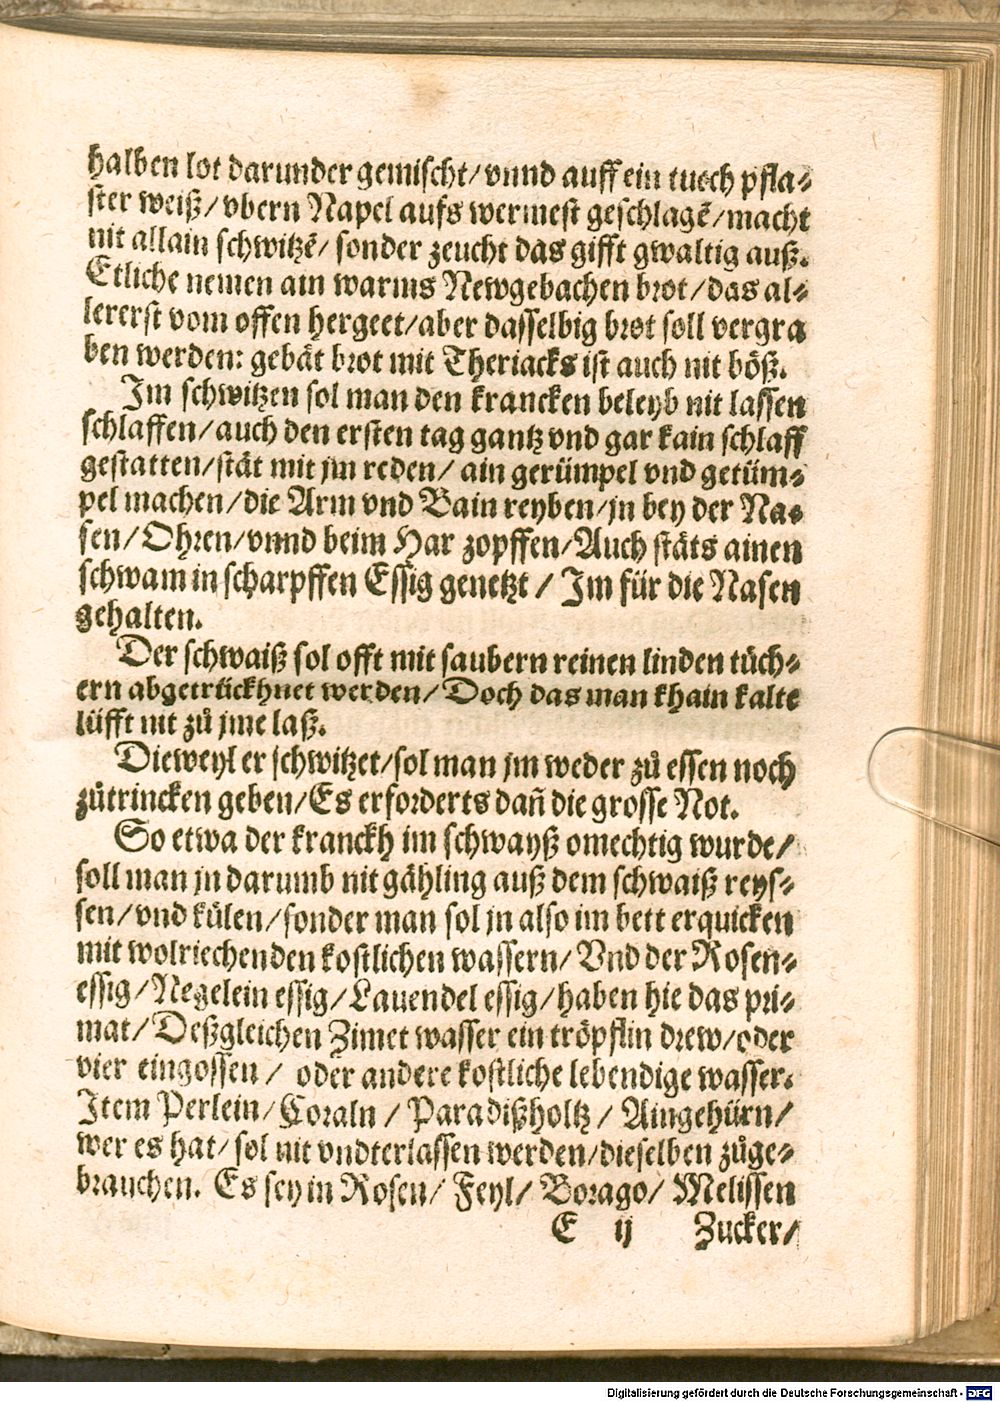 halben lot darunder gemischt/vnnd auff ein tuoch pfla⸗
ster weiß/vbern Napel aufs wermest geschlagē/macht
nit allain schwitzē/sonder zeucht das gifft gwaltig auß.
Etliche nemen ain warms Newgebachen brot/das al⸗
lererst vom offen hergeet/aber dasselbig brot soll vergra
ben werden: gebät brot mit Theriacks ist auch nit böß.
Im schwitzen sol man den krancken beleyb nit lassen
schlaffen/auch den ersten tag gantz vnd gar kain schlaff
gestatten/stät mit jm reden/ ain gerümpel vnd getüm⸗
pel machen/die Arm vnd Bain reyben/jn bey der Na⸗
sen/Ohren/vnnd beim Har zopffen/Auch stäts ainen
schwam in scharpffen Essig genetzt / Im für die Nasen
gehalten.
Der schwaiß sol offt mit saubern reinen linden tüch⸗
ern abgetrückhnet werden/Doch das man khain kalte
lüfft nit zů jme laß.
Dieweyl er schwitzet/sol man jm weder zů essen noch
zůtrincken geben/Es erforderts dañ die grosse Not.
So etwa der kranckh im schwayß omechtig wurde/
soll man jn darumb nit gähling auß dem schwaiß reys⸗
sen/vnd külen/sonder man sol jn also im bett erquicken
mit wolriechenden kostlichen wassern/Vnd der Rosen⸗
essig/Negelein essig/Lauendel essig/haben hie das pri⸗
mat/Deßgleichen Zimet wasser ein tröpflin drew/oder
vier eingossen / oder andere kostliche lebendige wasser.
Item Perlein/Coraln / Paradißholtz / Aingehürn/
wer es hat/sol nit vndterlassen werden/dieselben zůge⸗
brauchen. Es sey in Rosen/ Feyl/ Borago/ Melissen
E ij Zucker/
Digitalisierung gefördert durch die Deutsche Forschungsgemeinschaft - DFG